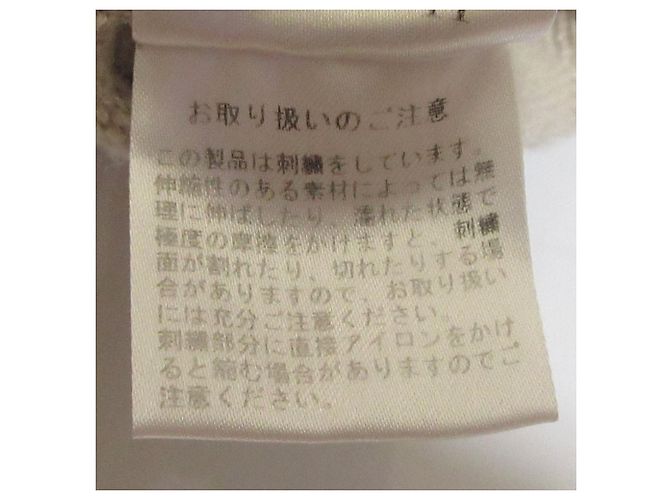 お取り扱いのご注意
この製品は刺繍をしています。
伸縮性のある素材によっては無
理に伸ばしたり、濡れた状態で
極度の摩擦をかけますと、刺繍
面が割れたり、切れたりする場
合がありますので、お取り扱い
には充分ご注意ください。
刺繍部分に直接アイロンをかけ
ると縮む場合がありますのでご
注意ください。